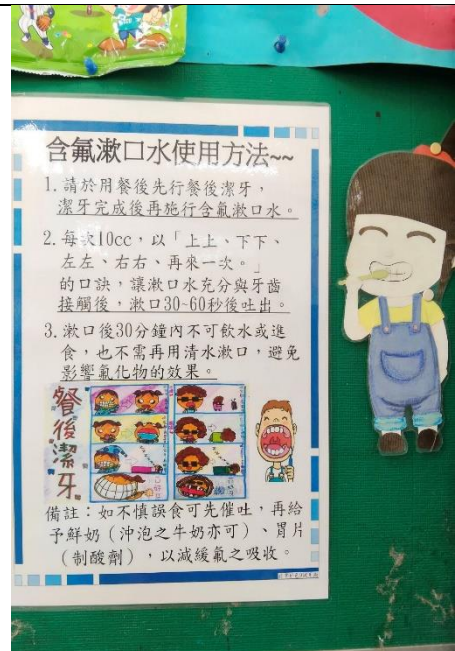 含氟漱口水使用方法~~
1. 請於用餐後先行餐後潔牙，
潔牙完成後再施行含氟漱口水。
2. 每次10cc，以「上上、下下、
左左、右右、再來一次。」
的口訣，讓漱口水充分與牙齒
接觸後，漱口30~60秒後吐出。
3. 漱口後30分鐘內不可飲水或進
食，也不需再用清水漱口，避免
影響氟化物的效果。
餐後潔牙
備註：如不慎誤食可先催吐，再給
予鮮奶（沖泡之牛奶亦可）、胃片
（制酸劑），以減緩氟之吸收。